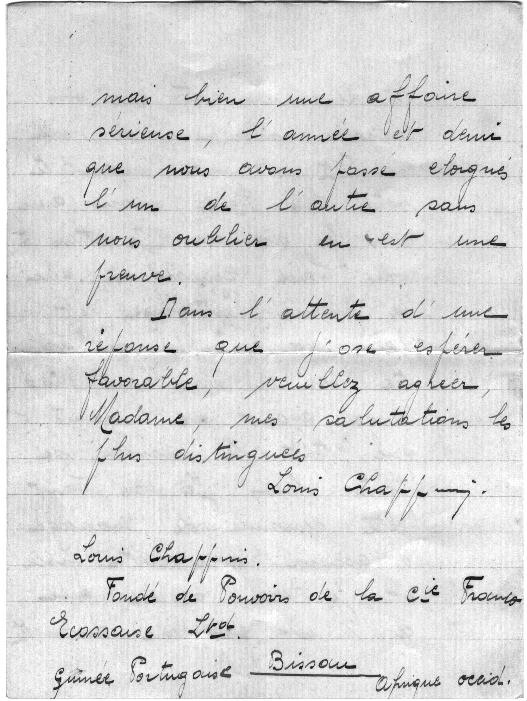 mais bien une affaire
sérieuse, l'année et demi
que nous avons passé eloignés
l'un de l'autre sans
nous oublier en est une
preuve.
Dans l'attente d'une
réponse que j'ose espérer
favorable, veuillez agréer,
Madame, mes salutations les
plus distinguées
Louis Chappuis.
Louis Chappuis.
Fondé de Pouvoirs de la Cie Franco
Ecossaise Ltd.
Guinée Portugaise Bissau Afrique occid.